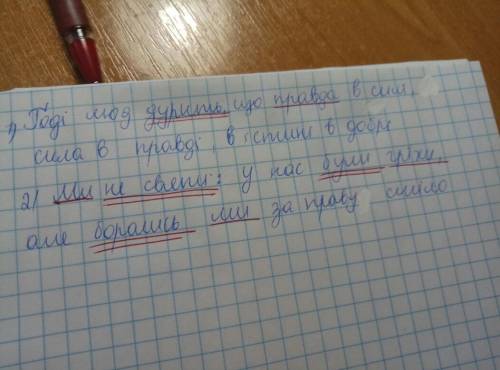 1) Годі люд дурить, що правда в силі,
сила в правді, в істині в добрі
2) Ми не святі: у нас були гріхи,
але боролись ми за правду сміло